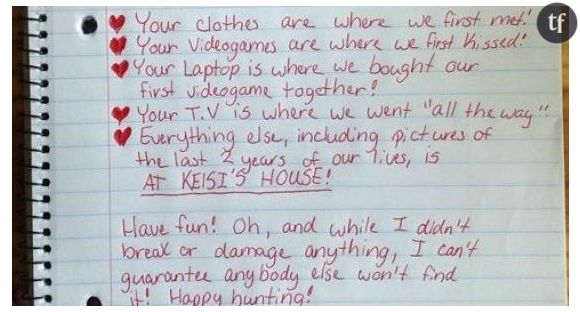 tf
Your clothes are where we first met!
Your Videogames are where we first Kissed!
Your Laptop is where we bought our
first videogame together!
Your T.V is where we went "all the way"!
Everything else, including pictures of
the last 2 years of our lives, is
AT KEISI'S HOUSE!
Have fun! Oh, and while I didn't
break or damage anything, I can't
guarantee anybody else won't find
it! Happy hunting!